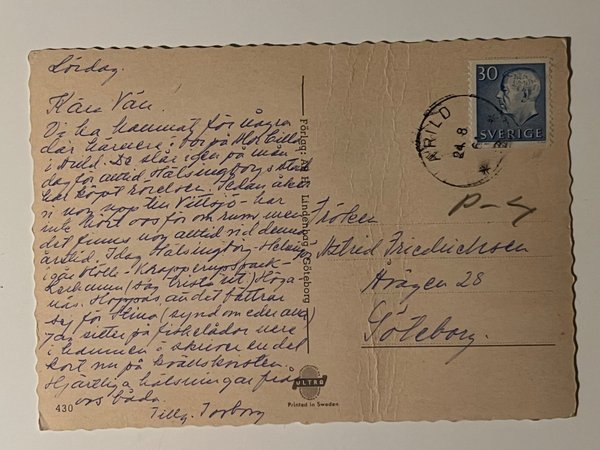 Lördag.
Kära Vän.
Vi ha kommit för några
dar härnere; bor på Hot.
i Arild. De slår igen på mån
dag för alltid Hälsingborgs stad
har köpt rörelsen. Sedan åker
vi nog upp ten Vittsjö - har
inte hört oss för om rum men
det finnes nog alltid vid denna
årstid. Idag Hälsingborg - Helsing
i går Mölle - Krapperupspark -
(tag trista rit) Höga
näs. Hoppas an det bättrar
sej för Stina (synd om eder an)
Jag sitter på fiskelådor nere
i hamnen å skriver en del
kort nu på kvällskvisten.
Hjärtliga hälsningar från
oss båda.
Tilly. Torborg
430
Förlag: AB H. Lindenborg, Göteborg
ULTRA
Printed in Sweden
30
SVERIGE
ARILD
24.8.
P-4
Fröken
Astrid Friedrichsen
Avägen 28
Göteborg.